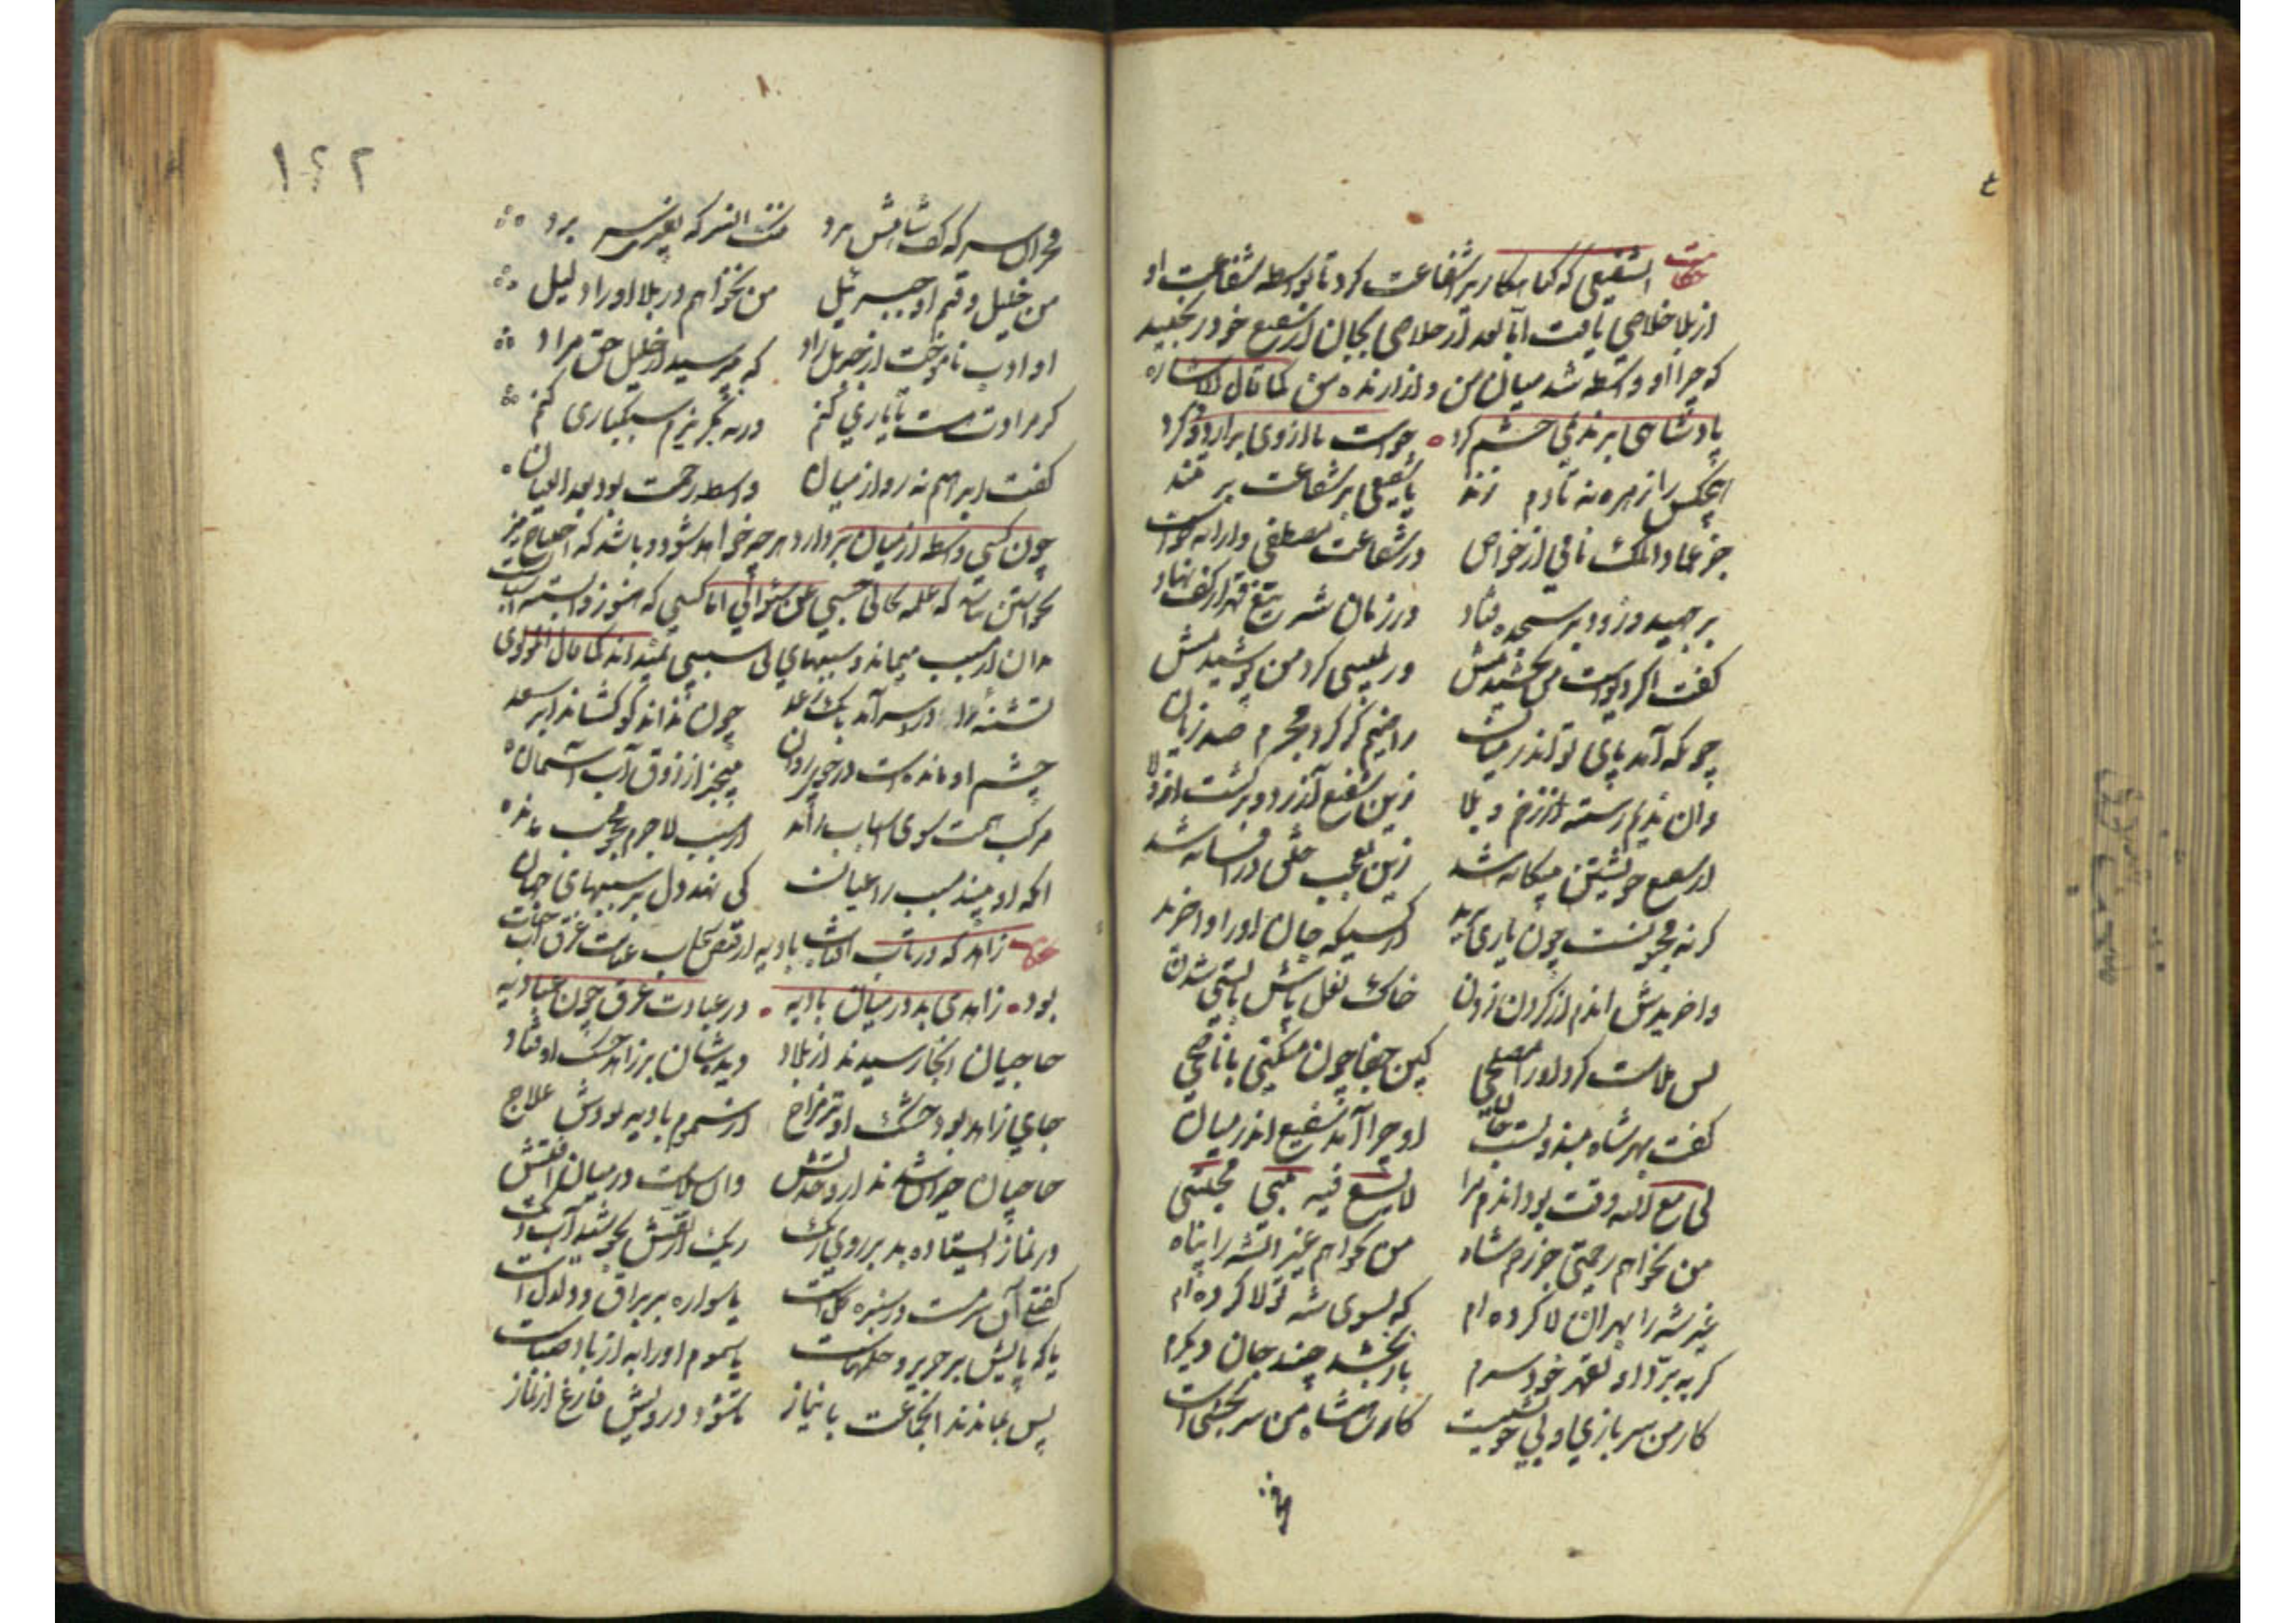 حکایت آن شفیعی که گناهکار بر شفاعت کرد تا بواسطه شفاعت او
از بلا خلاصی یافت اما بعد از خلاصی بجان از شفیع خود رنجید
که چرا او واسطه شد میان من و ازارنده من کما قال للاشاره
پادشاهی بر ندیمی خشم کرد خواست تا از وی برارد دود و کرد
هیچکس را زهره نه تا دم زند یا شفیعی بر شفاعت بر تند
جز عماد الملک نامی از خواص در شفاعت مصطفی وارانه خاص
بر جهید و زود در سجده فتاد در زمان شه تیغ قهر از کف نهاد
کفت اگر دیوست من بخشیدمش ور بلیسی کرد من پوشیدمش
چونکه آمد پای تو اندر میان راضیم کر کرد مجرم صد زیان
وان ندیم رسته از زخم و بلا زین شفیع آزرد و برکشت از ولا
از شفیع خویشتن بیکانه شد زین تعجب خلق در افسانه شد
کر نه مجنونست چون یاری برید از کسیکه جان اورا وا خرید
وا خریدش اندم از کردن زدن خاک نعل پاش بایستی شدن
پس ملامت کرد اورا مصلحی کین جفا چون میکنی با ناصحی
کفت بهر شاه مبذولست جان او چرا آمد شفیع اندر میان
لی مع الله وقت بود اندم مرا لا یسع فیه نبی مجتبی
من نخواهم رحمتی جز زخم شاه من نخواهم غیر انشه را پناه
غیر شه را بهر ان لا کرده ام که بسوی شه تولا کرده ام
کر ببرد او بقهر خود سرم باز بخشد چند جان دیکرم
کار من سربازی و بی خویشیست کار شاهنشاه من سر بخشی است
۱۶۲
فخر ان سر که کف شاهش برد ننک انسر که بغیری سر برد
من خلیل وقتم او جبرئیل من نخواهم در بلا اورا دلیل
او ادب ناموخت از جبریل راد که بپرسید از خلیل حق مراد
کر مرادت هست تا یاری کنم ورنه بگریزم سبکباری کنم
کفت ابراهیم نه رو از میان واسطه زحمت بود بعد العیان
چون کسی واسطه از میان بردارد هر چه خواهد شود و باشد که احتیاج نیز
بخواستن نباشد که علمه بحالی حسبی عن سؤالی اما کسی که هنوز وابسته اسباب
تشنه را در سر آمد بانک رعد چون نداند کو کشاند ابر سعد
چشم او مانده است در جوی روان بیخبر از ذوق آب آسمان
مرکب همت سوی اسباب راند از مسبب لاجرم محجوب ماند
انکه او بیند مسبب را عیان کی نهد دل بر سببهای جهان
بود زاهدی بد در میان بادیه در عبادت غرق چون عبادیه
حاجیان انجا رسیدند از بلاد دیده شان بر زاهد خشک اوفتاد
جای زاهد بود خشک او تر مزاج از سموم بادیه بودش علاج
حاجیان حیران شدند از وحدتش وان سلامت در میان افتش
در نماز ایستاده بد بر روی ریک ریک از تفش بجوشد آب دیک
کفتئی آن سرمست در سبزه و کل است یا سواره بر براق و دلدل است
یا که پایش بر حریر و حلهاست یا سموم اورا به از باد صباست
پس بماندند انجماعت با نیاز تا شود درویش فارغ از نماز